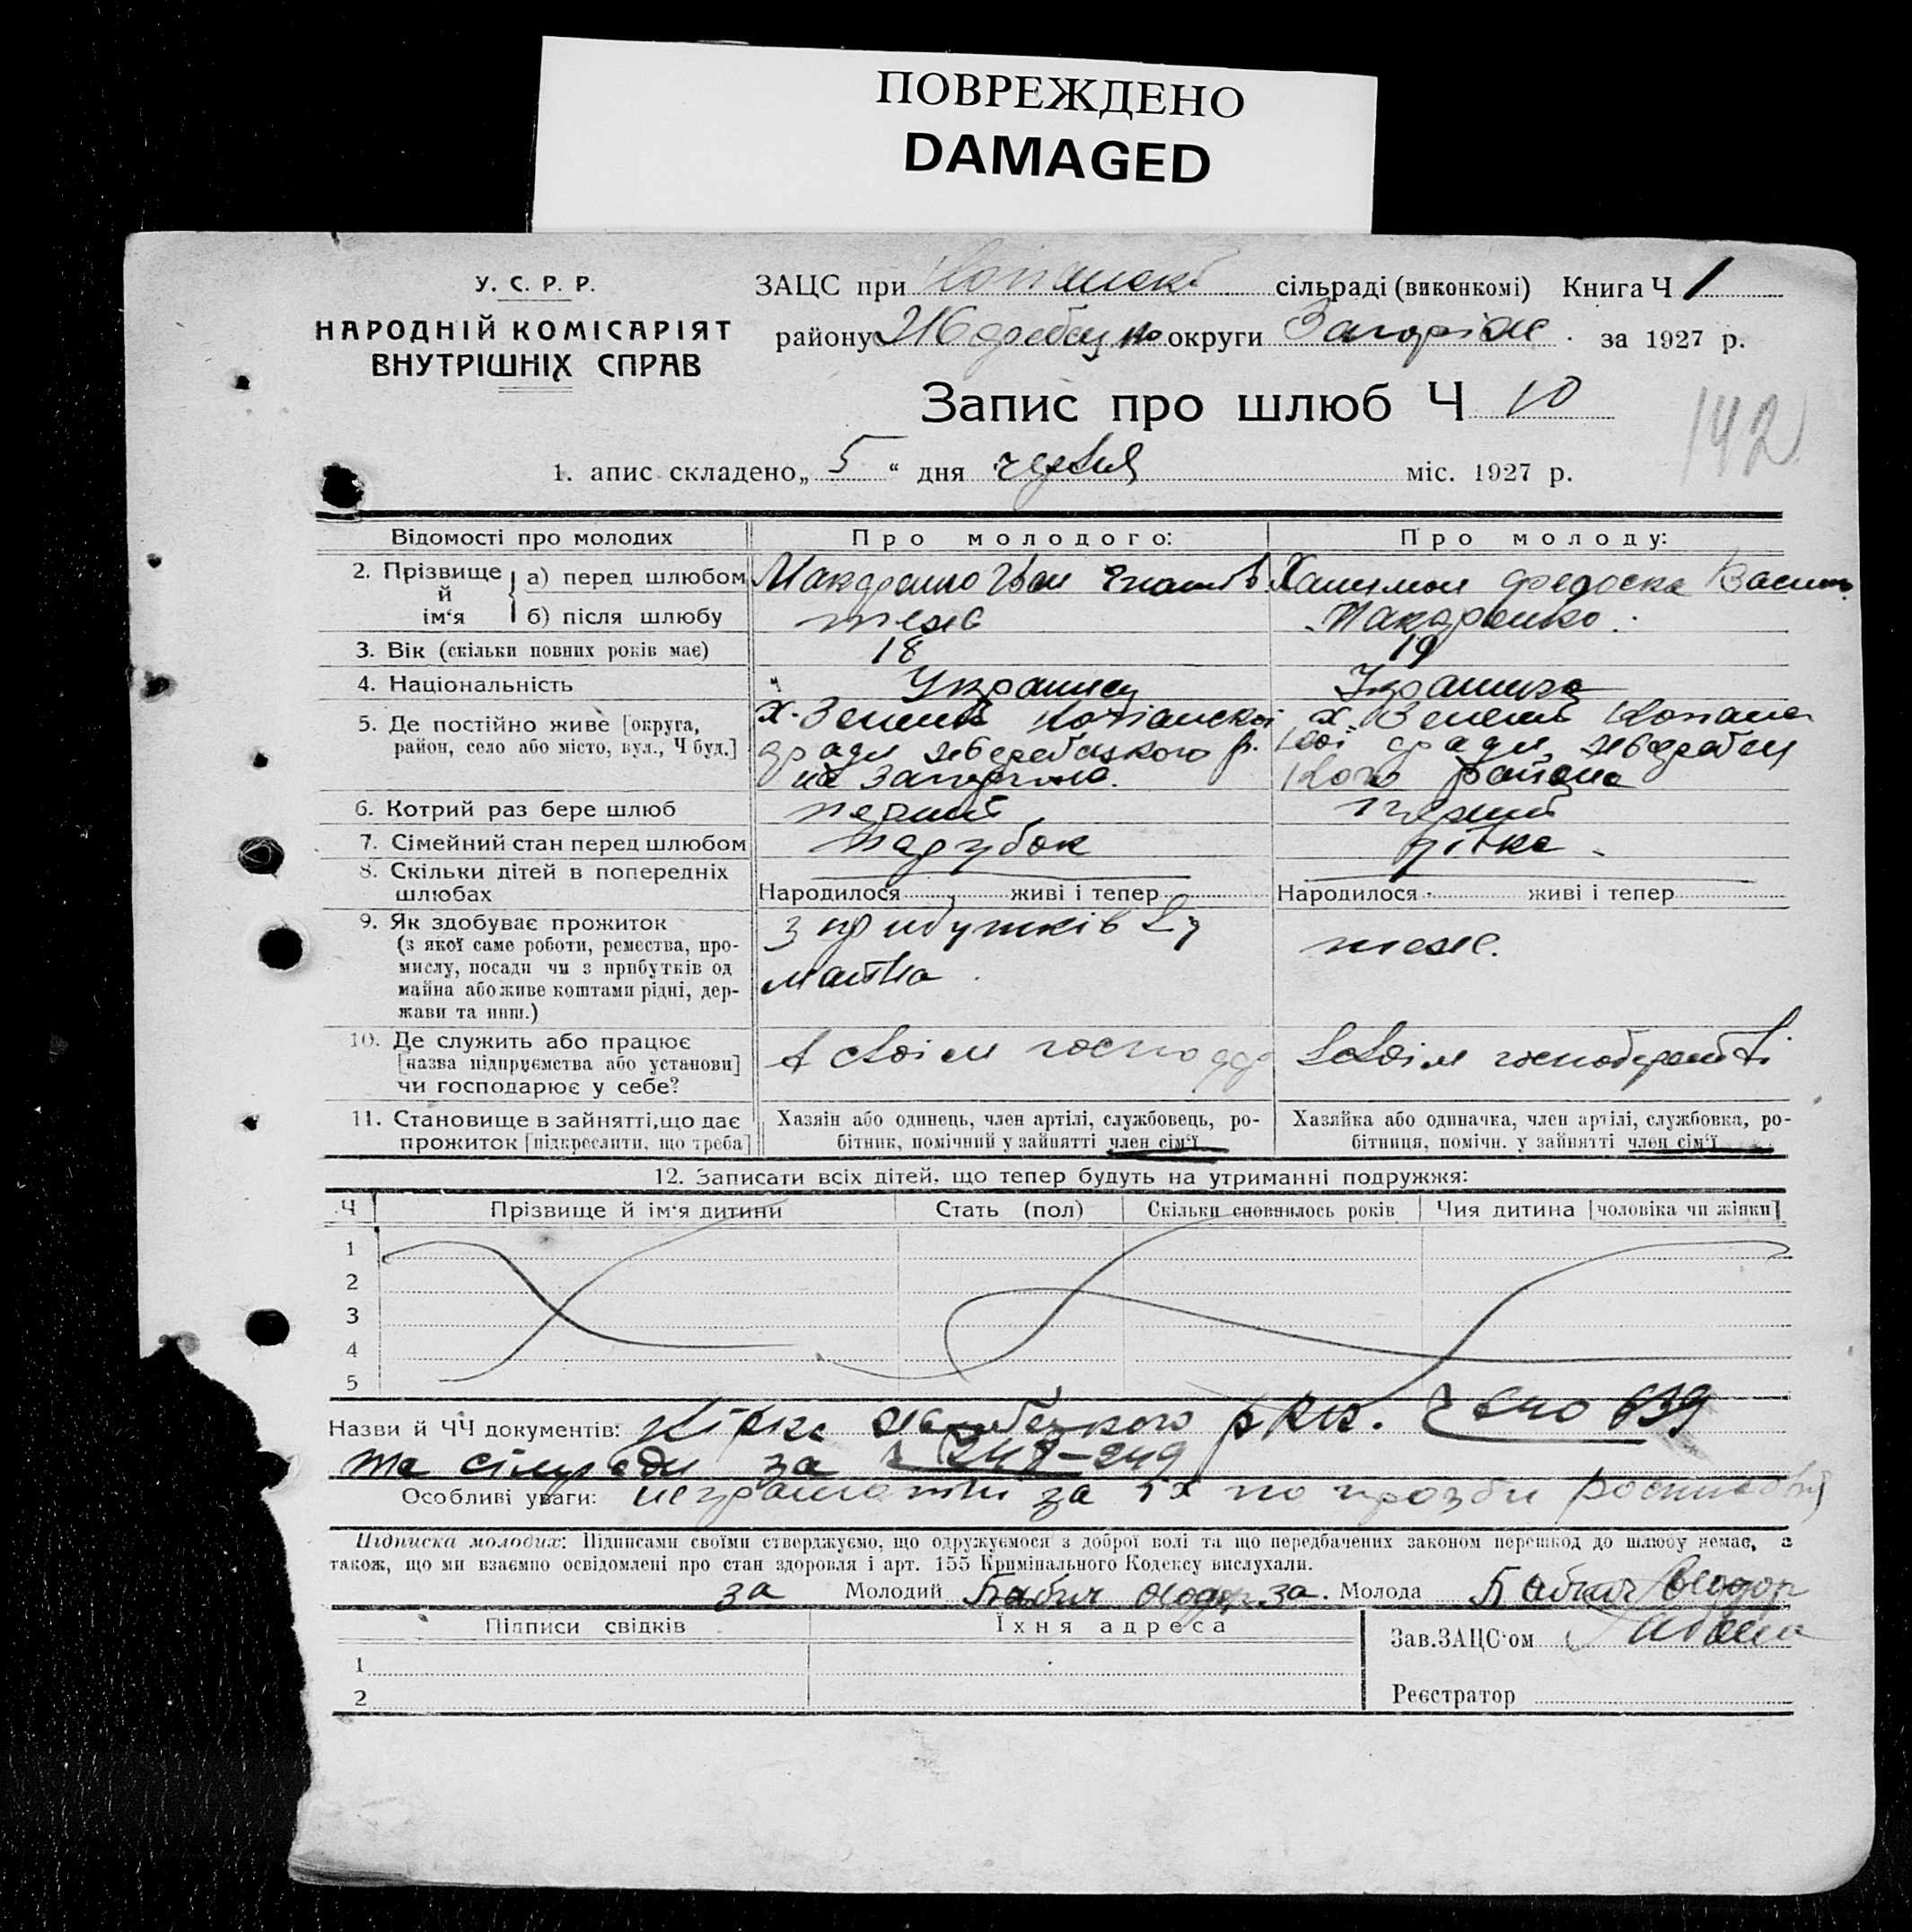 ПОВРЕЖДЕНО
DAMAGED
У. С. Р. Р.
НАРОДНІЙ КОМІСАРІЯТ
ВНУТРІШНІХ СПРАВ
ЗАЦС при сільраді (виконкомі) Книга Ч 1
району округи за 1927 р.
Запис про шлюб Ч 10
142
1. апис складено „ 5 “ дня червня міс. 1927 р.
Відомості про молодих
Про молодого:
Про молоду:
2. Прізвище й ім‘я
а) перед шлюбом
Макаренко Іван
Федоска
б) після шлюбу
теж
Макаренко
3. Вік (скільки повних років має)
18
19
4. Національність
Українец
Українка
5. Де постійно живе [округа,
район, село або місто, вул., Ч буд.]
х. Зелений
х. Зелений
ради
ради
кого района
6. Котрий раз бере шлюб
перший
перший
7. Сімейний стан перед шлюбом
парубок
дівка
8. Скільки дітей в попередніх
шлюбах
Народилося живі і тепер
Народилося живі і тепер
9. Як здобуває прожиток
(з якої саме роботи, ремества, про-
мислу, посади чи з прибутків од
майна або живе коштами рідні, дер-
жави та инш.)
з прибутків
теж.
10. Де служить або працює
[назва підприємства або установи]
чи господарює у себе?
в своім
в своім господарстві
11. Становище в зайнятті, що дає
прожиток [підкреслити, що треба]
Хазяїн або одинець, член артілі, службовець, ро-
бітник, помічний у зайнятті член сім‘ї
Хазяйка або одиначка, член артілі, службовка, ро-
бітниця, помічн. у зайнятті член сім‘ї
12. Записати всіх дітей, що тепер будуть на утриманні подружжя:
Ч Прізвище й ім‘я дитини Стать (пол) Скільки сповнилось років Чия дитина [чоловіка чи жінки]
1
2
3
4
5
Назви й ЧЧ документів: 639
та сільради за 248-249
Особливі уваги: неграмотні за їх по прозби
Підписка молодих: Підписами своїми стверджуємо, що одружуємося з доброї волі та що передбачених законом перешкод до шлюбу немає, а
також, що ми взаємно освідомлені про стан здоровля і арт. 155 Кримінального Кодексу вислухали.
за Молодий Бабич за. Молода Бабич
Підписи свідків
Їхня адреса
Зав.ЗАЦС‘ом
1
2
Реєстратор